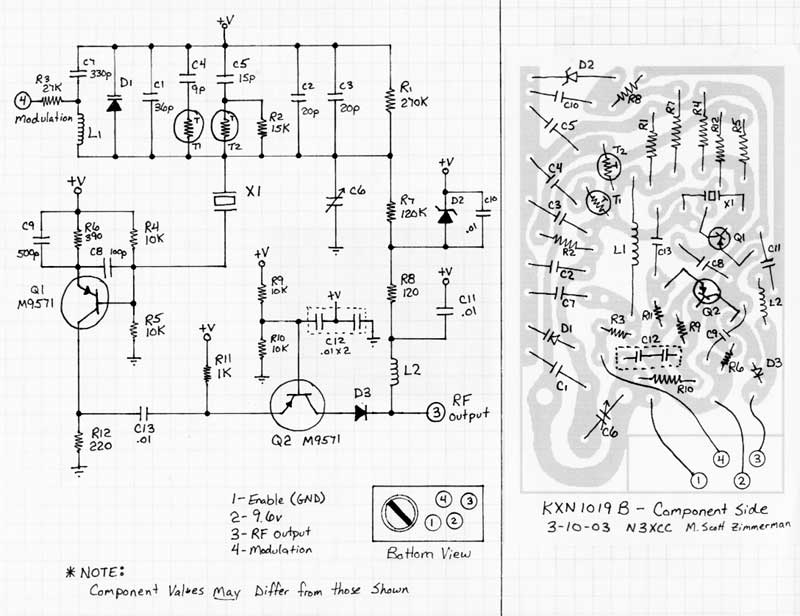 +V
C7
330p
R3
27K
4
Modulation
L1
D1
C1
36p
C4
9p
T
T1
C5
15p
T
T2
R2
15K
C2
20p
C3
20p
R1
270K
X1
C6
R7
120K
+V
D2
C10
.01
+V
C9
500p
R6
390
R4
10K
C8
100p
Q1
M9571
R5
10K
R9
10K
+V
C12
.01x2
R10
10K
R8
120
+V
C11
.01
L2
+V
R11
1K
R12
220
C13
.01
Q2 M9571
D3
3
RF
Output
1-Enable (GND)
2- 9.6v
3-RF output
4-Modulation
4
3
1
2
Bottom View
* NOTE:
Component Values May Differ from those Shown
D2
C10
R8
C5
R1
R7
R4
R12
R5
T2
C4
T1
X1
C3
R2
L1
C13
Q1
C8
C11
C2
C7
Q2
L2
R11
R3
R9
C9
D1
C12
R6
D3
C1
R10
C6
4
3
1
2
KXN1019B - Component Side
3-10-03 N3XCC M. Scott Zimmerman